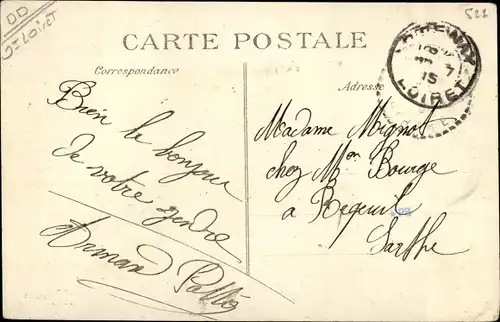 OD
Loiret
521
CARTE POSTALE
Correspondance
Adresse
LOIRET
15
Bien le bonjour
de votre gendre
Armand
Madame Mignot
chez Mon Bourge
à Begeuil
Sarthe